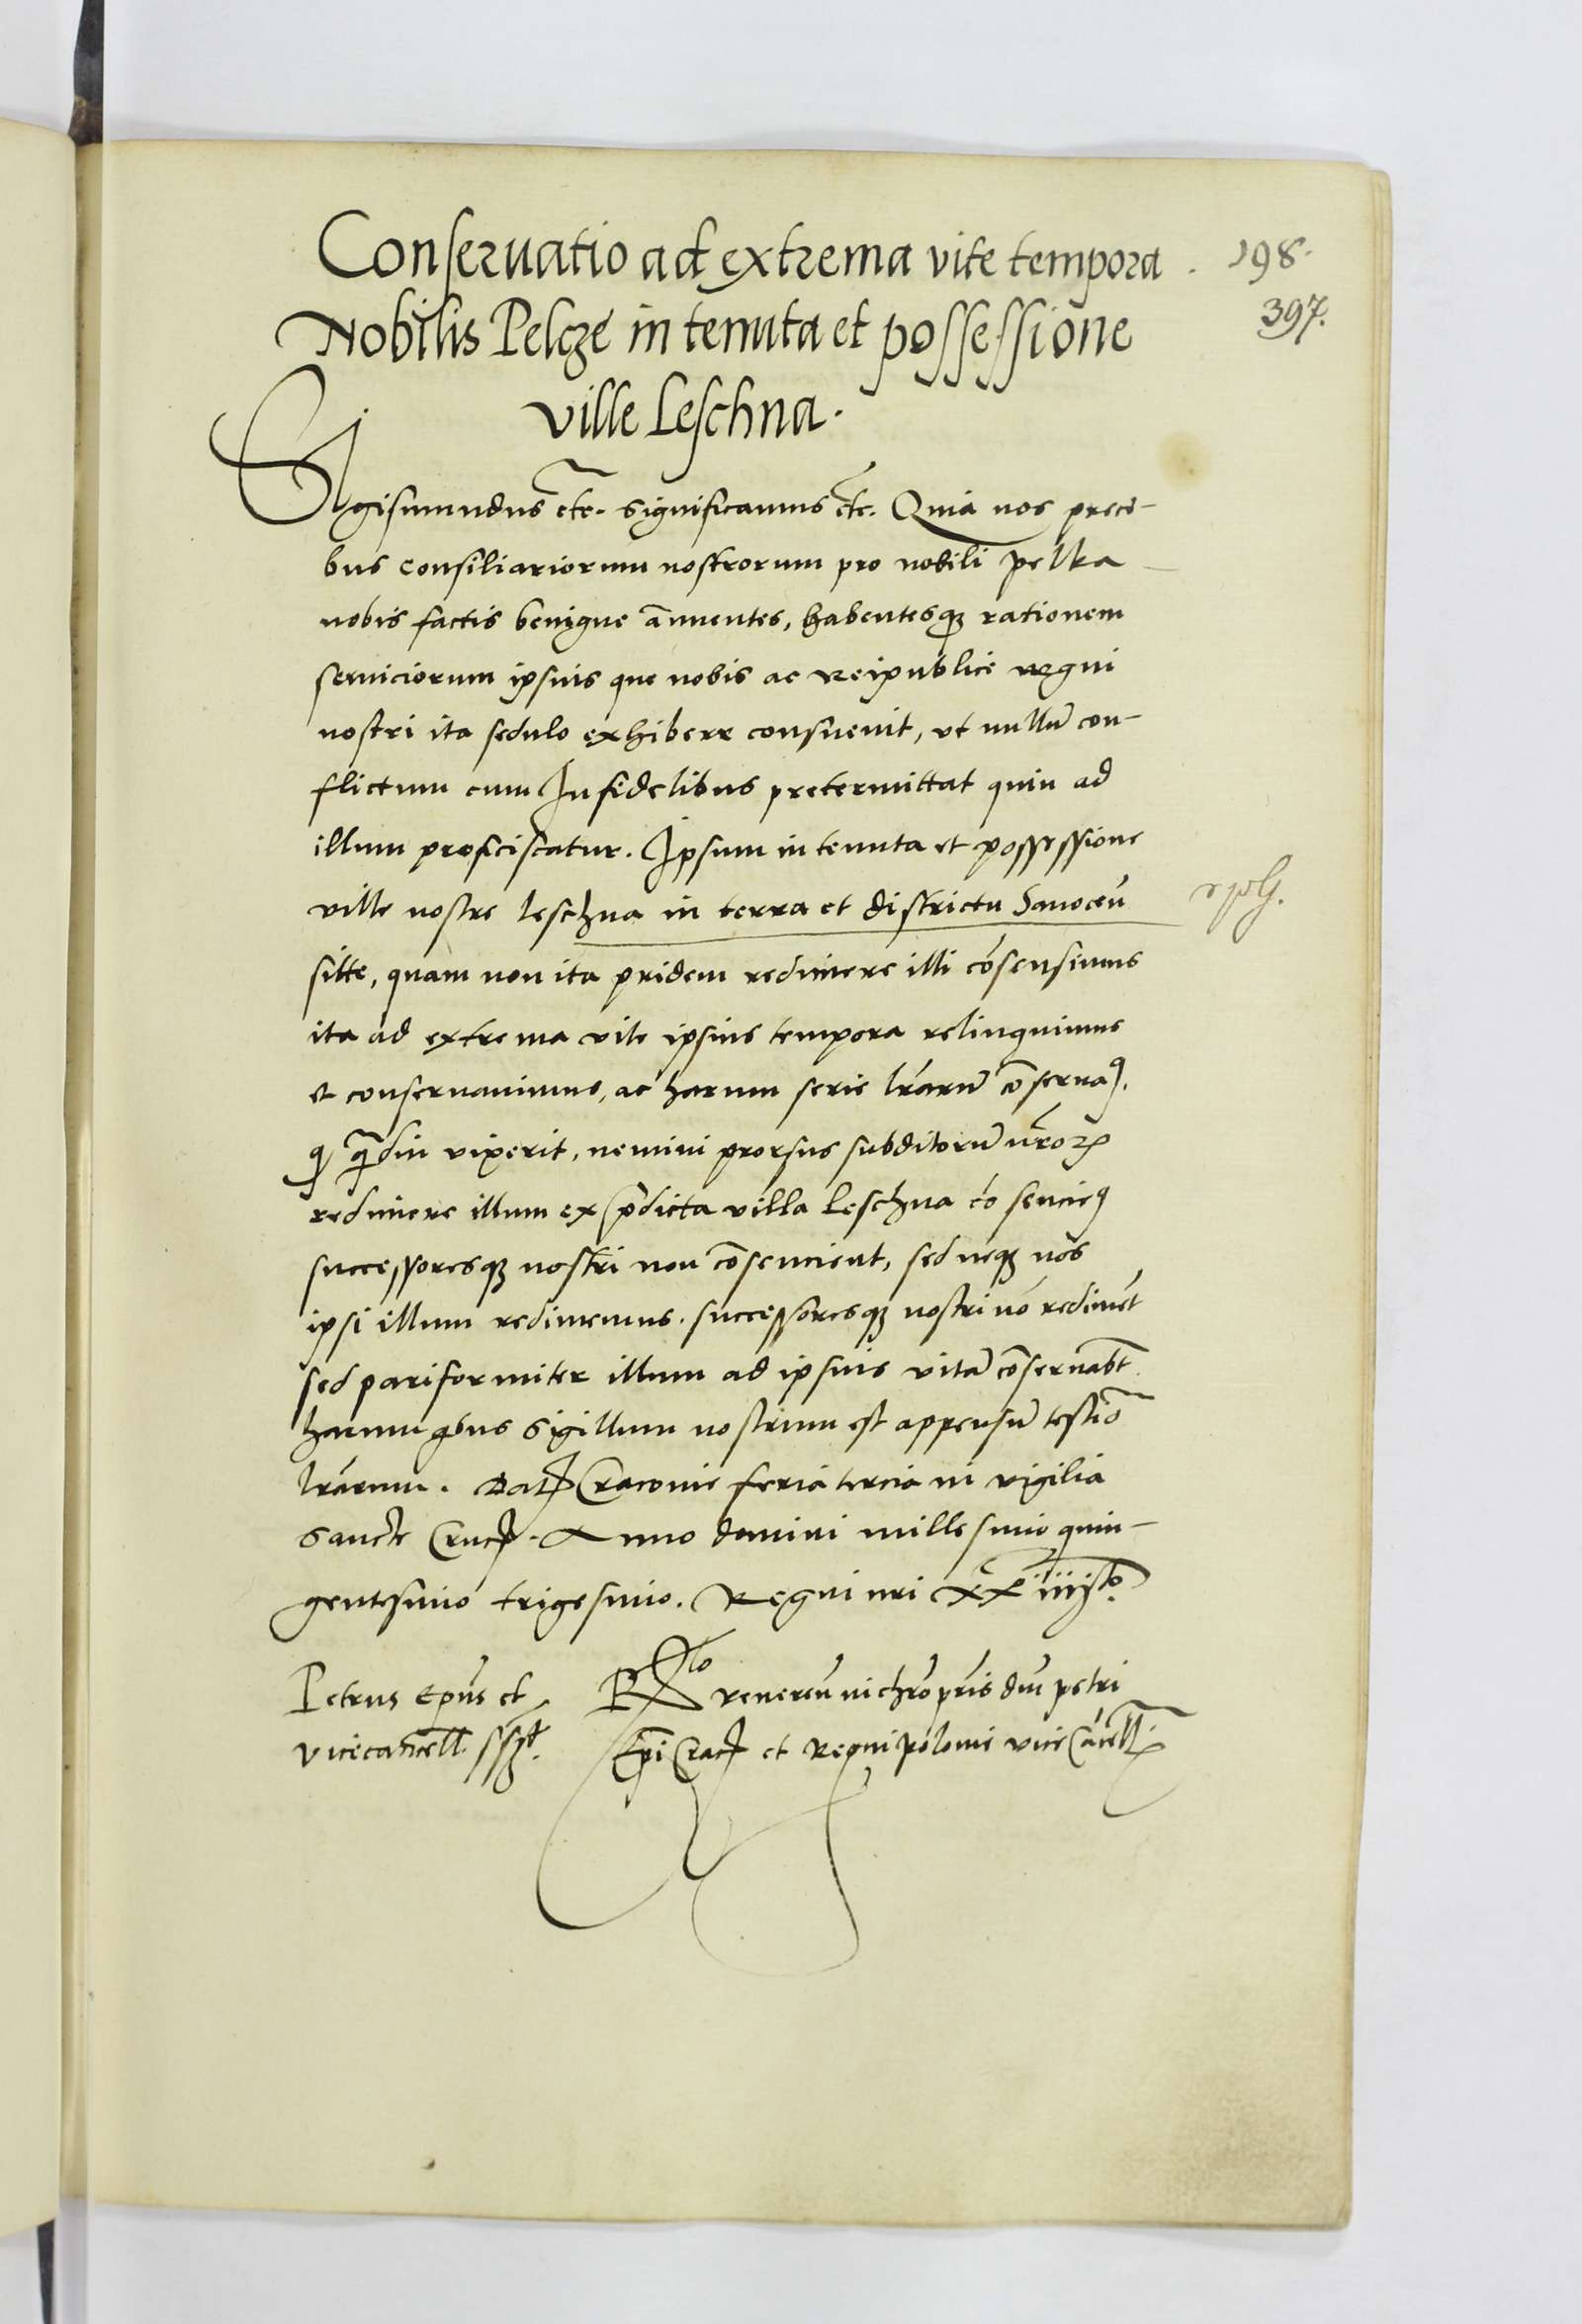 Conseruatio ad extrema vite tempora . 198.
397.
Nobilis Pelcze in tenuta et possessione
ville Leschna.
Sigismundus etc. significamus etc. Quia nos preci-
bus consiliariorum nostrorum pro nobili pelka
nobis factis benigne ānuentes, habentesqꝫ rationem
seruiciorum ipsius que nobis ac Reipublice regni
nostri ita sedulo exhibere consueuit, vt nullū con-
flictum cum Infidelibus pretermittat quin ad
illum proficiscatur. Ipsum in tenuta et possessione
ville nostre leschna in terra et districtu Sanoceñ
sitte, quam non ita pridem redimere illi cōsensimus
ita ad extrema vite ipsius tempora relinquimus
et conseruauimus, ac harum serie lr̄arū cōseruaꝯ.
qꝫ q̄diu vixerit, nemini prorsus subditorū nr̄oꝝ
redimere illum ex p̄dicta villa Leschna cōsencieꝯ
successoresqꝫ nostri non cōsencient, sed neqꝫ nos
ipsi illum redimemus. successoresqꝫ nostri nō redimēt
sed pariformiter illum ad ipsius vitā cōseruabt̄
harum qbus Sigillum nostrum est appensū testiō
lr̄arum. Datꝭ Cracouie feria tercia in vigilia
Sancte Crucꝭ. Anno domini millesimo quin-
gentesimo trigesimo. Regni nri XXiiiito.
Petrus Ep̄us et
Vicecancell. sszt.
Rlo reuereñ in chr̄o pr̄is dn̄i petri
Ep̄i Cracꝭ et Regni polonie vice Cācellꝭ